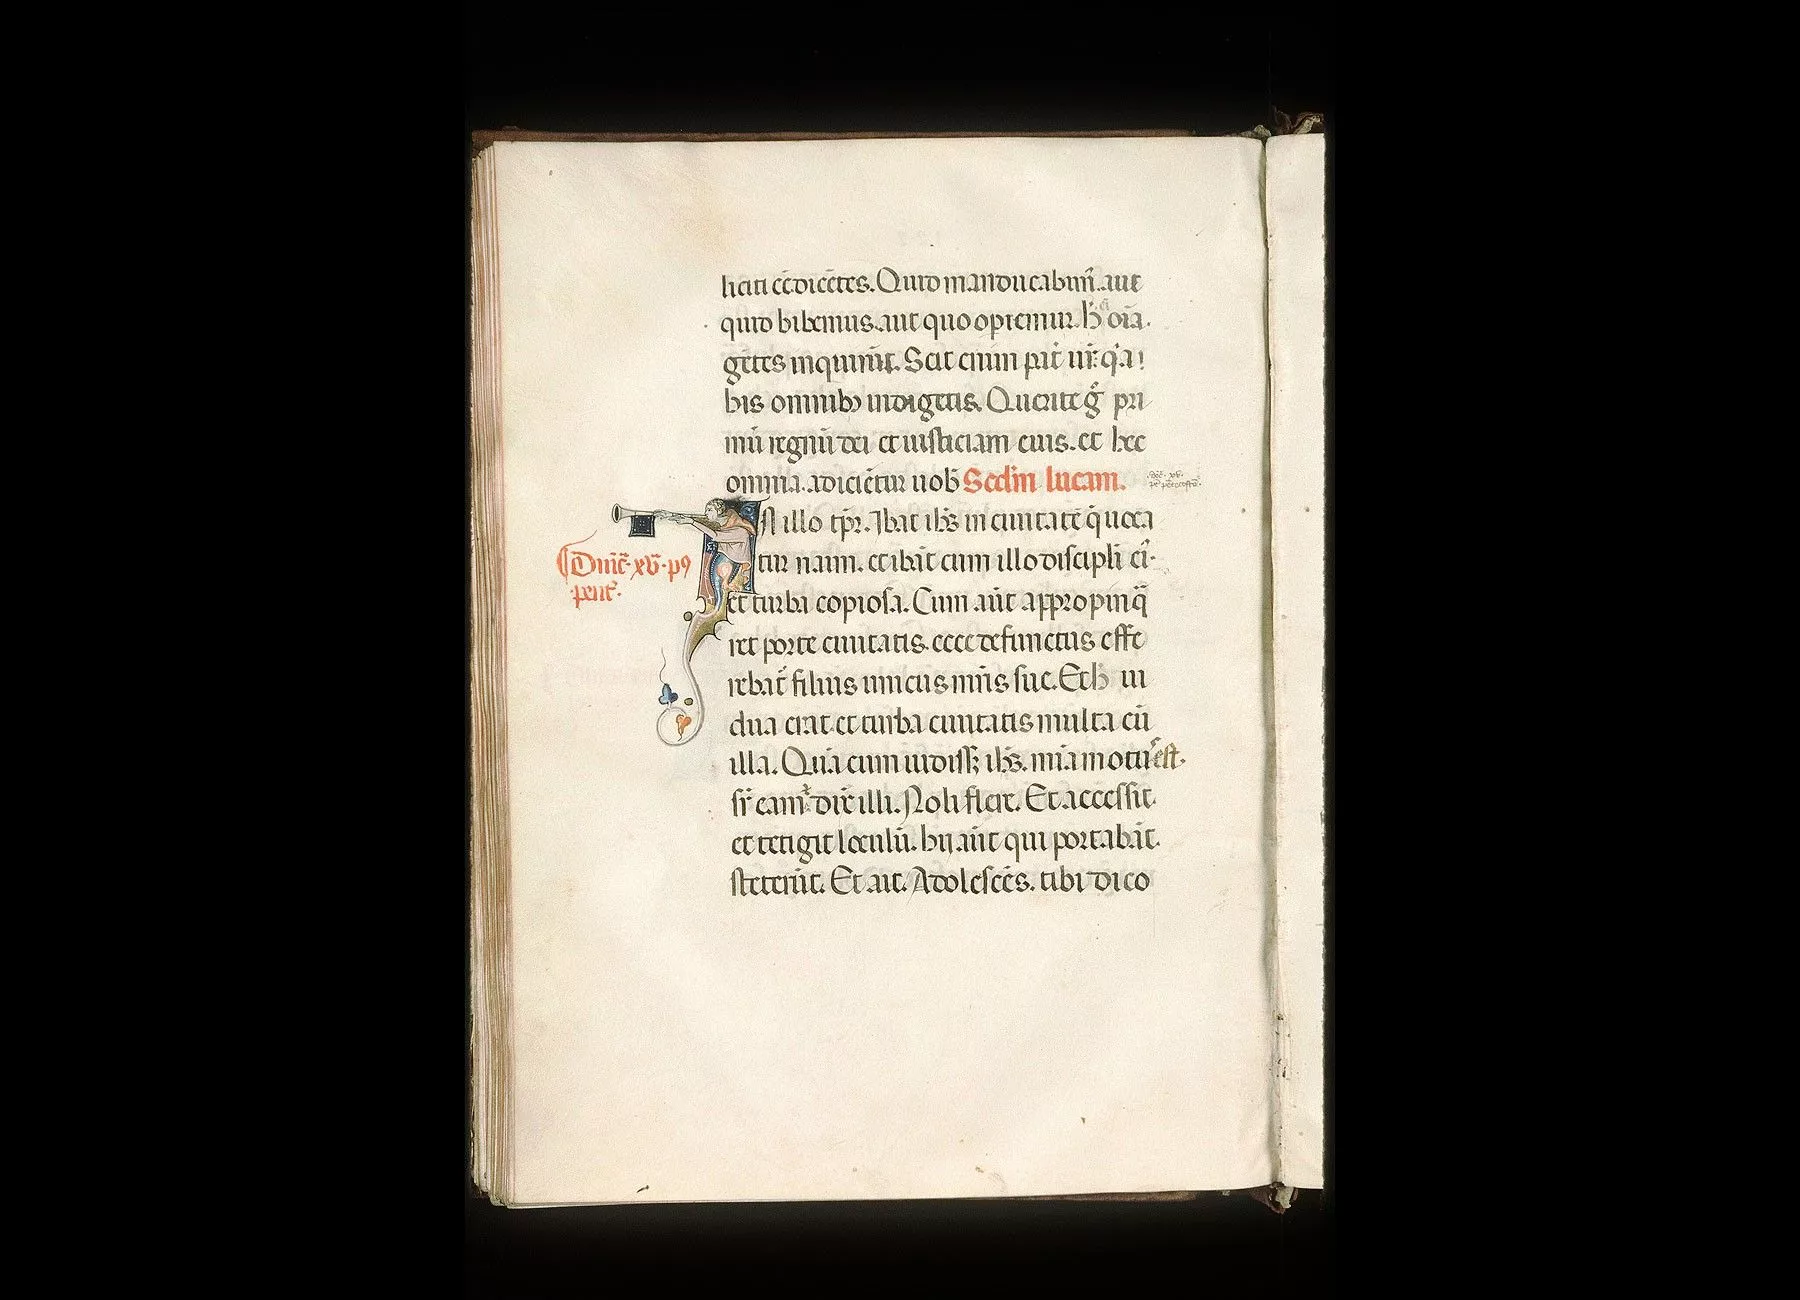 liciti eē dicētes. Quid manducabim᷒. aut
quid bibemus. aut quo opiemur. h̄ ei᷒ oīa.
gētes inquirūt. Scit enim pat̄ ur̄. q̓a
bis omnibꝫ indigetis. Querite g̊ pri
mū regnū dei et iusticiam eius. et hec
omnia adiciētur uob̄ Scd̄m lucam.
N illo tp̄r. Ibat ihs̄ in ciuitatē q̄ uoca
Dn̄ic̄. xv̄. p᷒
pent̄.
tur naim. et ibāt cum illo discipli ei᷒.
et turba copiosa. Cum aūt appropinq̄
ret porte ciuitatis. ecce defunctus effe
rebat̄ filius unicus mr̄is sue. Et h̄ ui
dua erat. et turba ciuitatis multa cū
illa. Quā cum uidissꝫ ihs̄. mīa motus est.
sr̄ eam. dix̄ illi. Noli flere. Et accessit.
et tetigit loculū. hii aūt qui portabāt.
steterūt. Et ait. Adolescēs. tibi dico